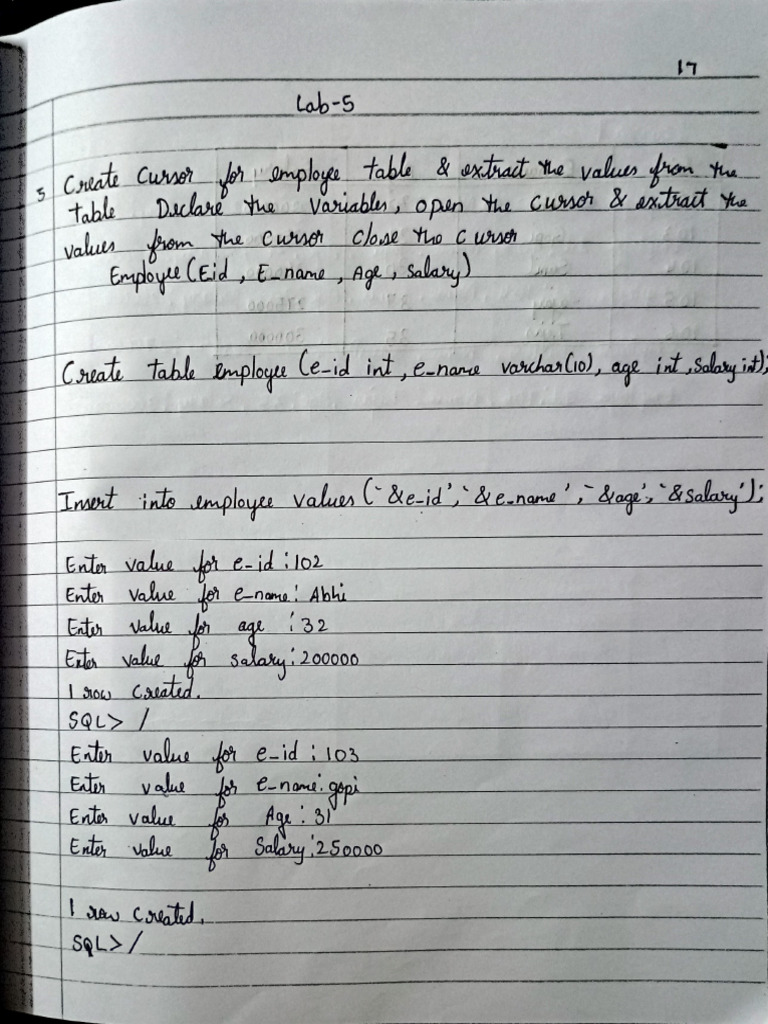 17
Lab-5
5 Create Cursor for employee table & extract the values from the
table Declare the Variables, open the cursor & extract the
values from the cursor close the cursor
Employee (Eid, E_name, Age, Salary)
Create table employee (e-id int, e_name varchar(10), age int, Salary int);
Insert into employee values (`&e-id', `&e_name', `&age', `&salary');
Enter value for e-id : 102
Enter value for e-name: Abhi
Enter value for age : 32
Enter value for salary: 200000
1 row created.
SQL> /
Enter value for e-id : 103
Enter value for e-name: gopi
Enter value for Age : 31
Enter value for Salary: 250000
1 row created.
SQL> /